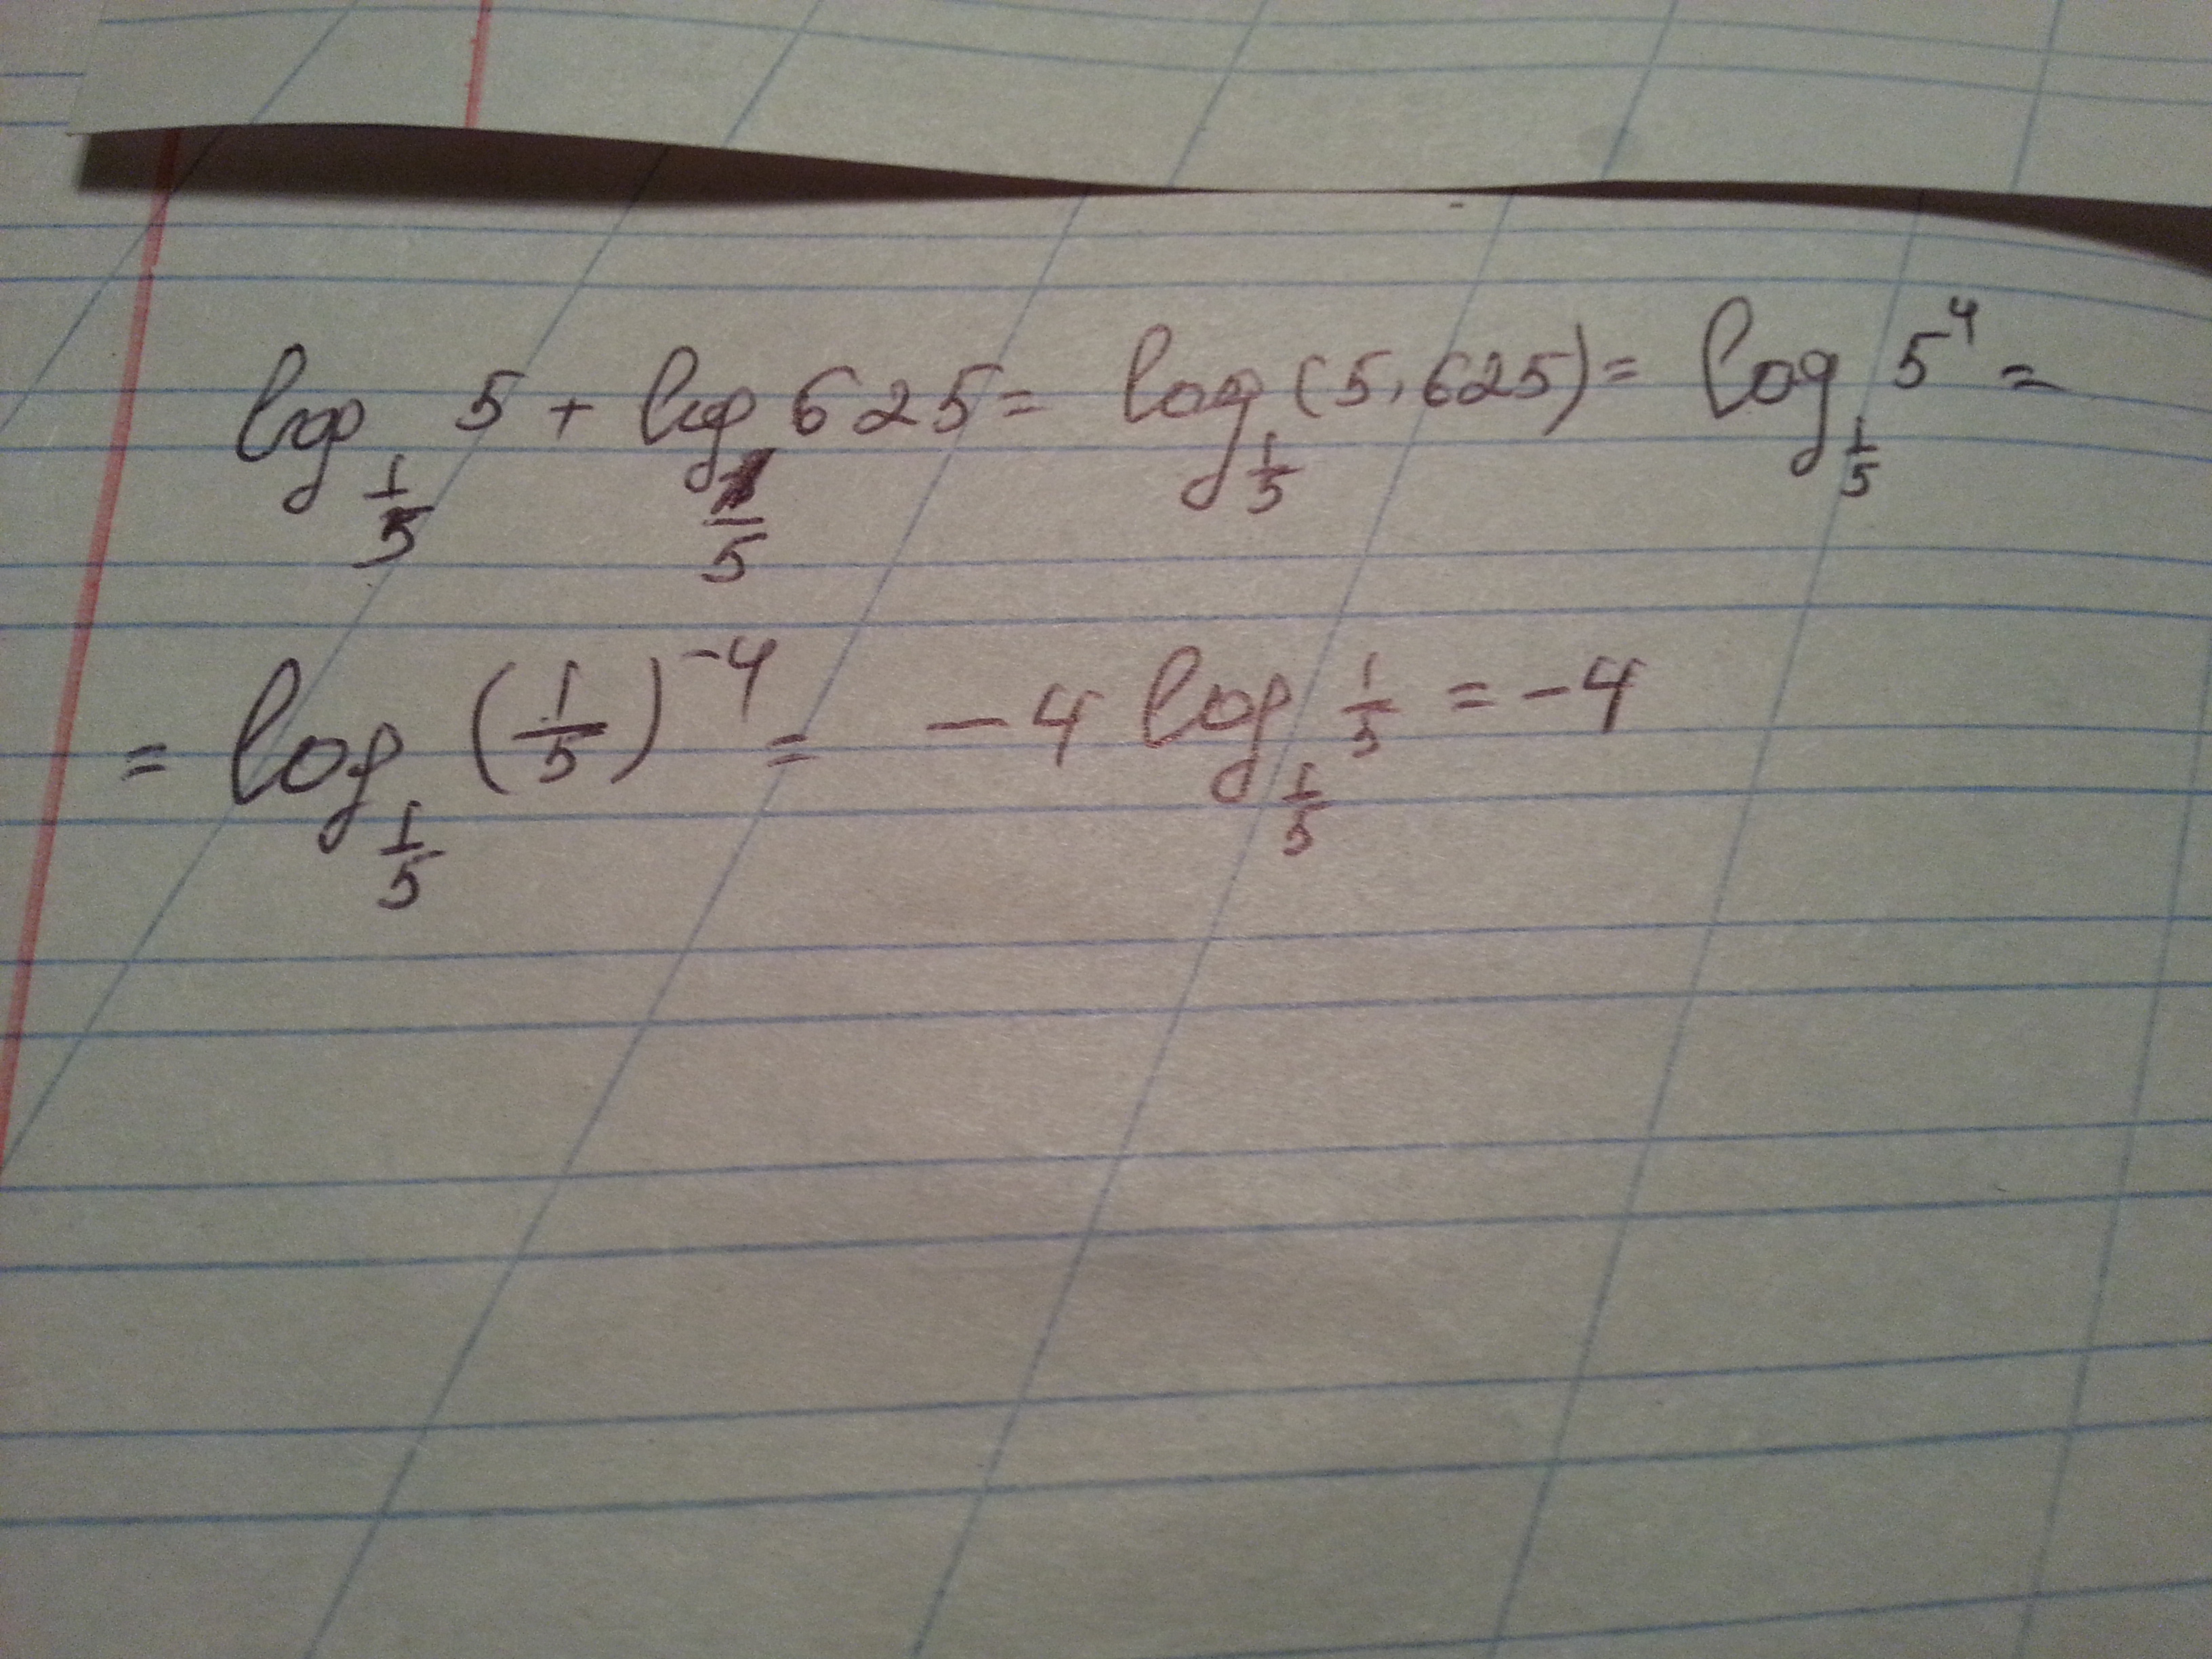 log_{1/5} 5 + log_{1/5} 625 = log_{1/5} (5·625) = log_{1/5} 5^4 =
= log_{1/5} (1/5)^{-4} = -4 log_{1/5} 1/5 = -4